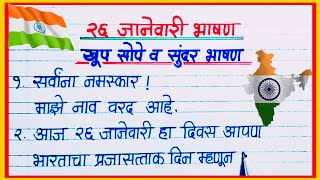 २६ जानेवारी भाषण
खूप सोपे व सुंदर भाषण
१. सर्वांना नमस्कार !
माझे नाव वरद आहे.
२. आज २६ जानेवारी हा दिवस आपण
भारताचा प्रजासत्ताक दिन म्हणून